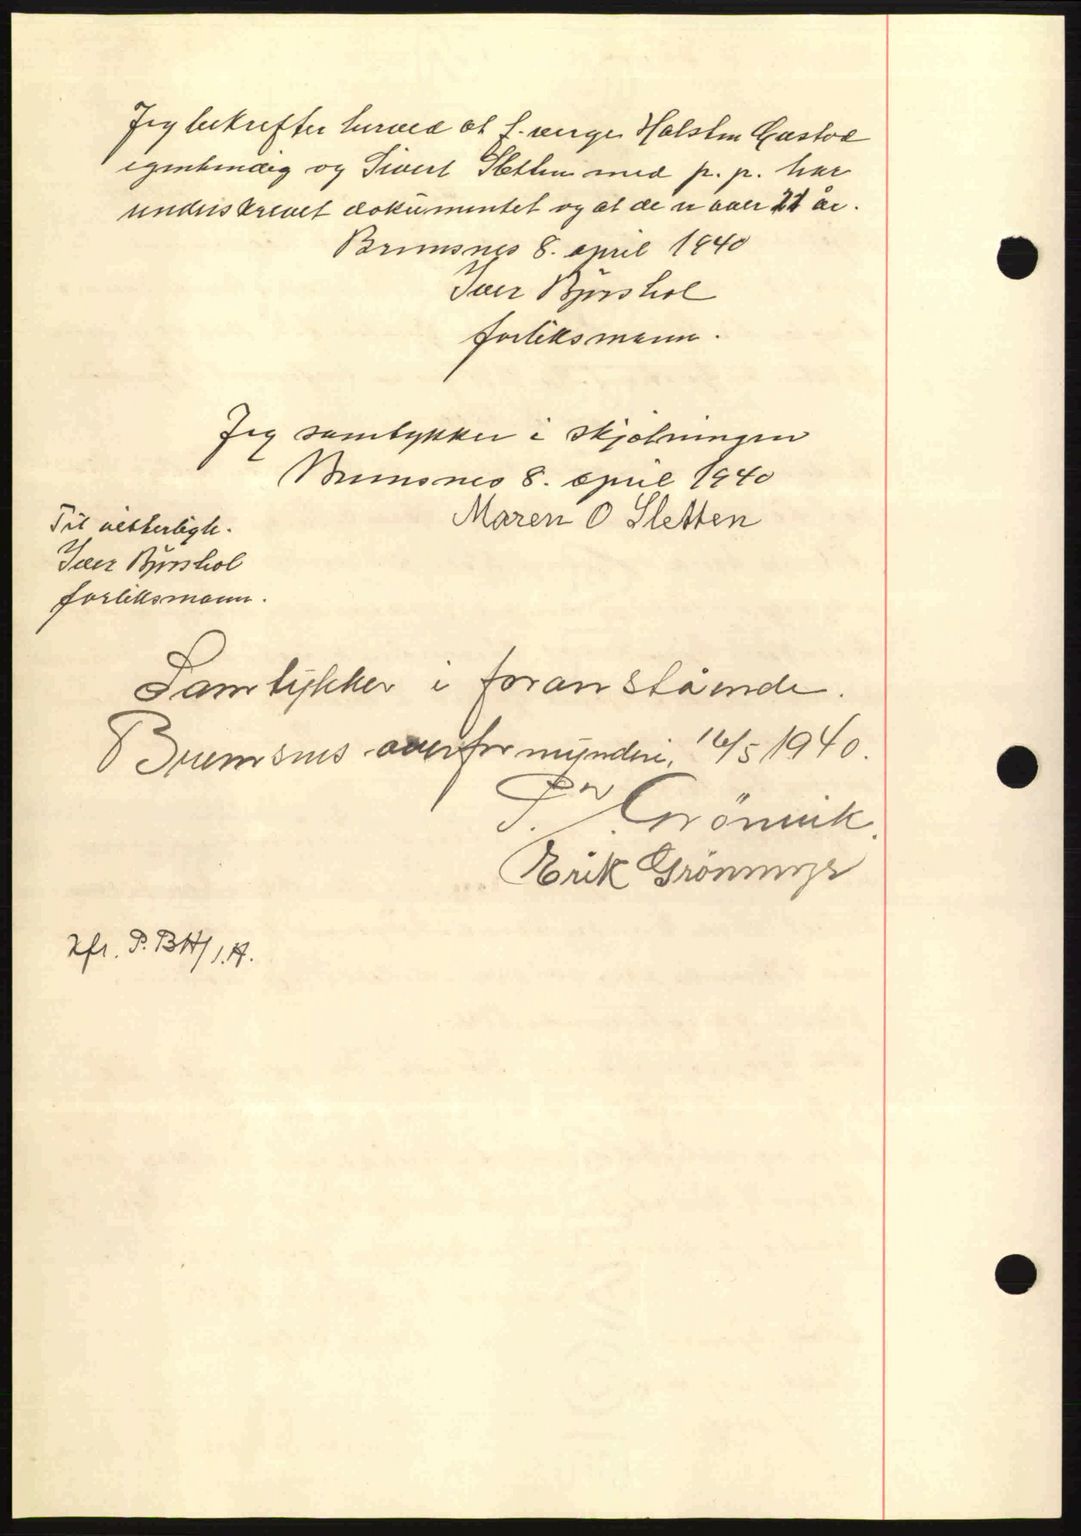 Jeg bekrefter herved at f. verge Halsten Gustad
egenhendig og Sivert Sletten med p. p. har
underskrevet dokumentet og at de er over 21 år.
Bremsnes 8. april 1940
Iver Bjørshol
forliksmann.
Jeg samtykker i skjøtningen
Bremsnes 8. april 1940
Maren O Sletten
Til vitterligh.
Iver Bjørshol
forliksmann.
Samtykker i foranstående.
Bremsnes overformynderi, 16/5 1940.
P. Grönvik.
Erik Grönmyr
Kfr. P. BH/1.A.